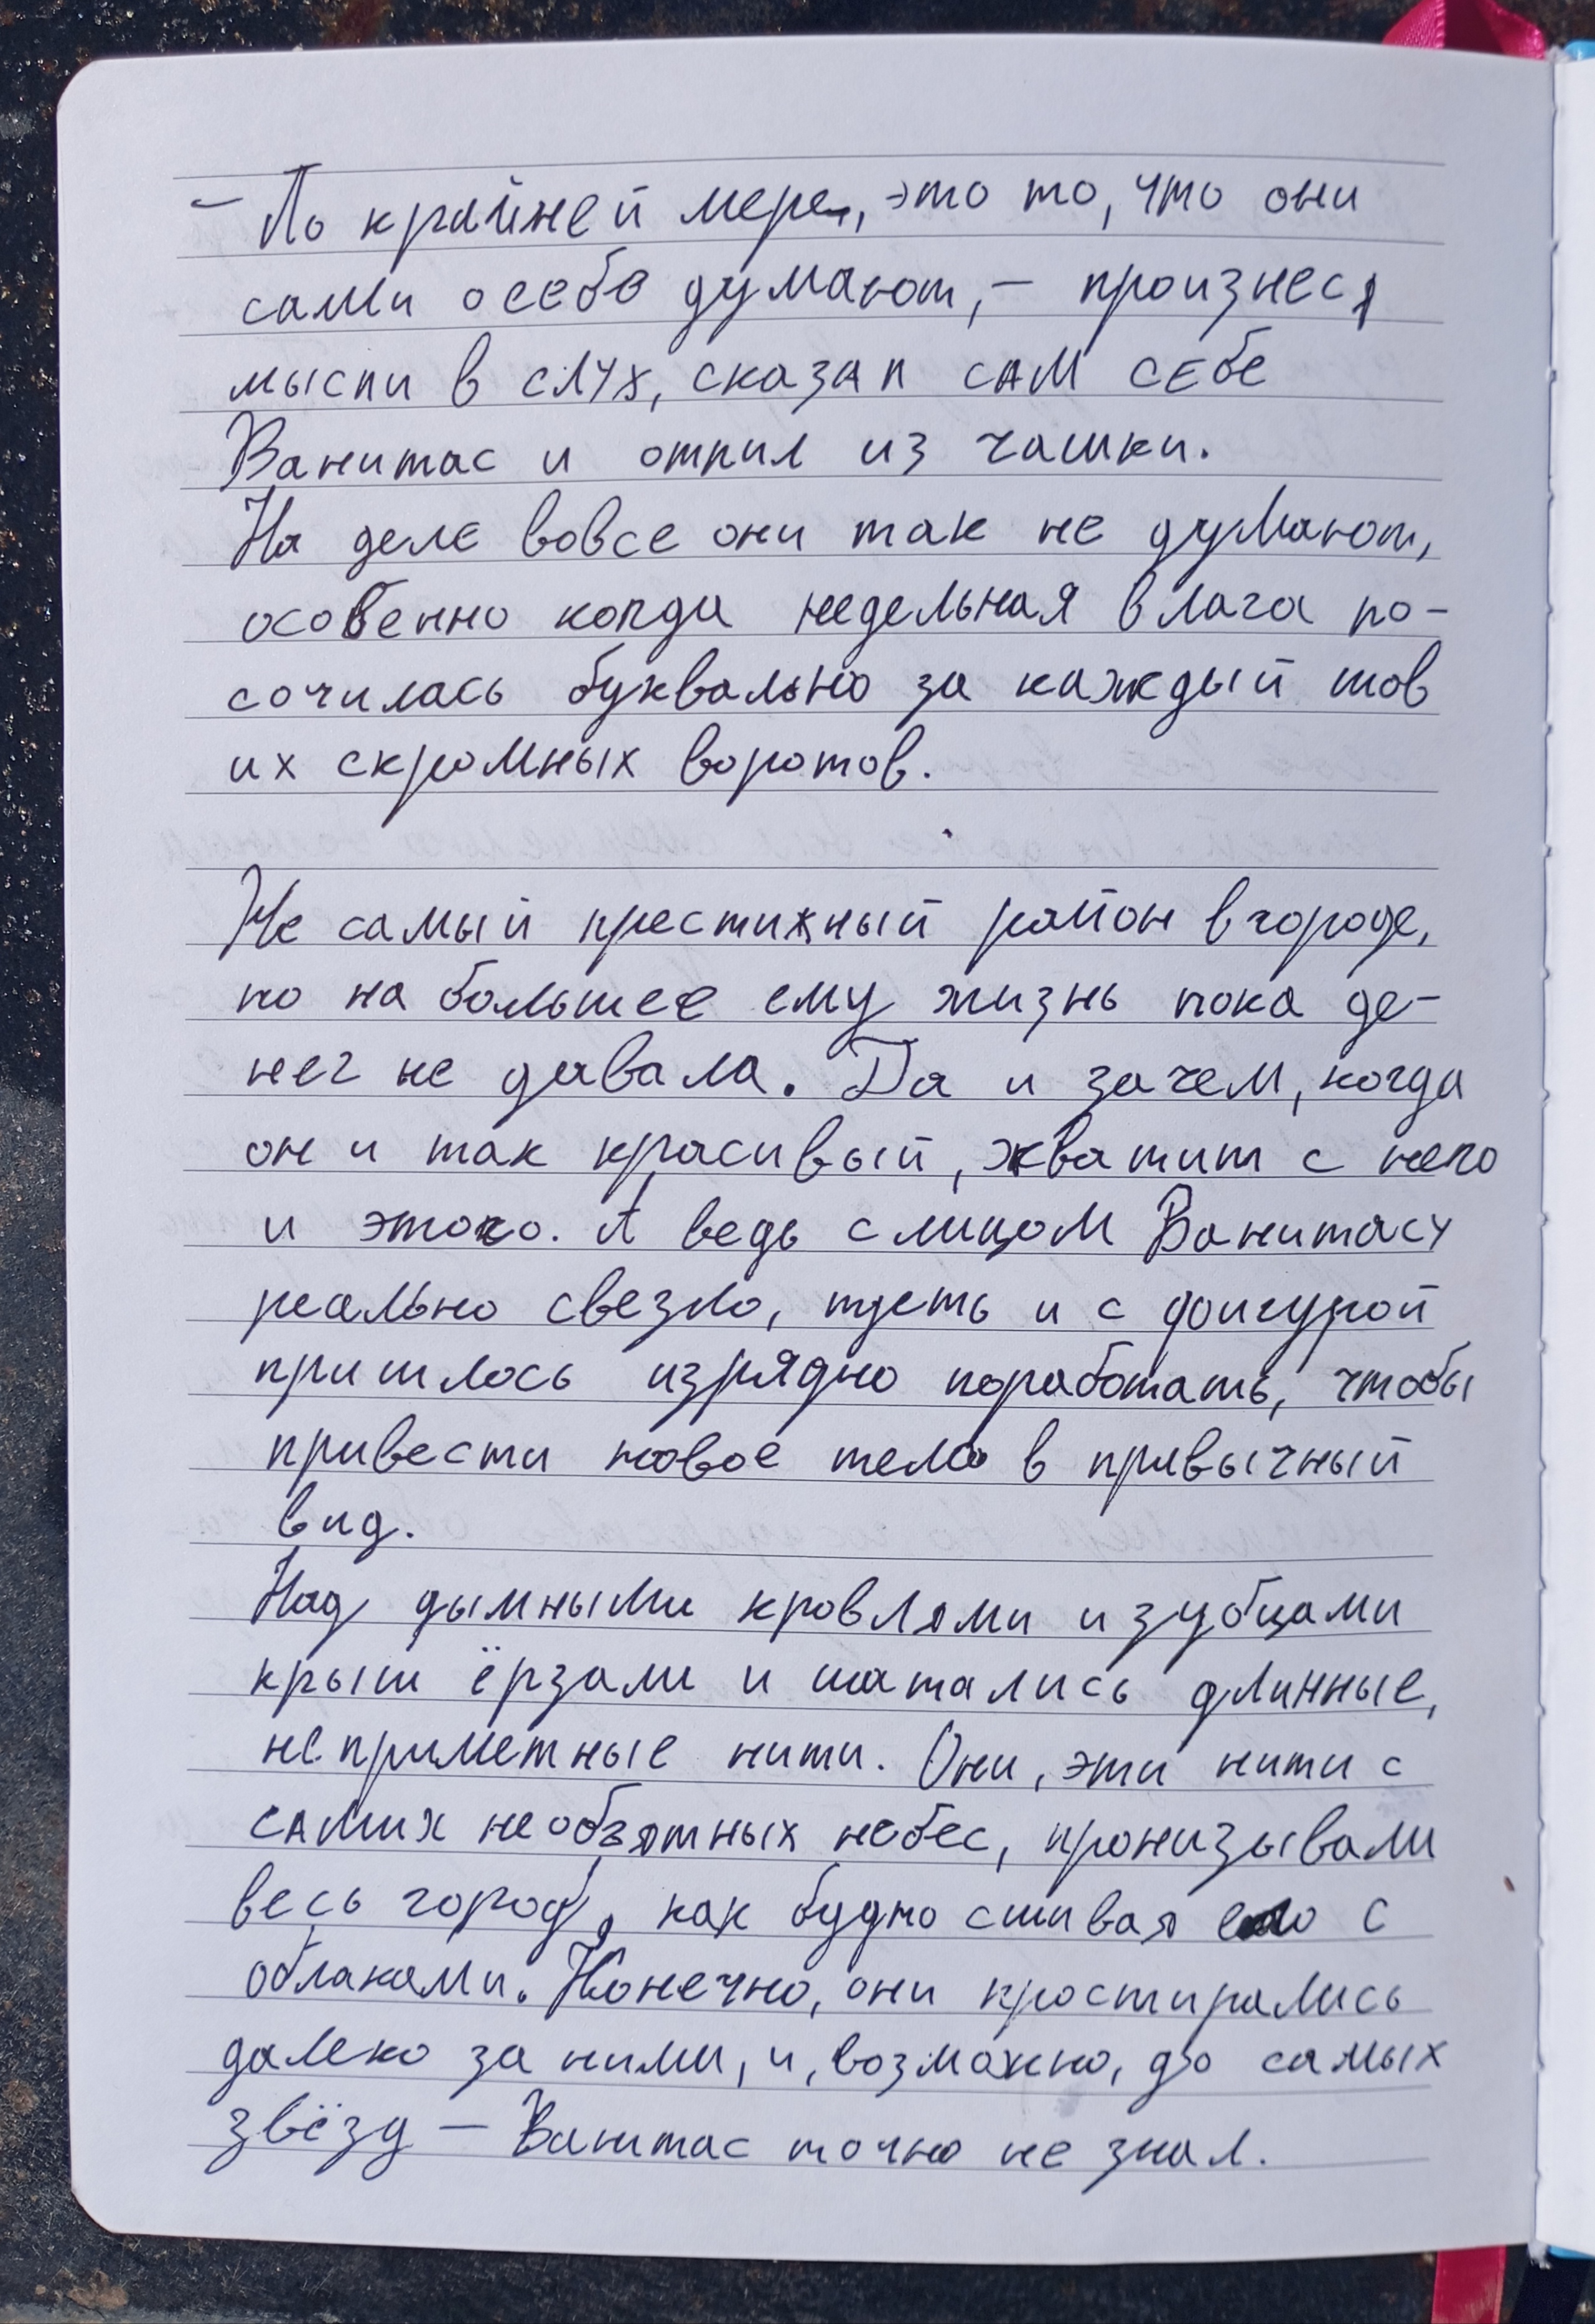 — По крайней мере, это то, что они
сами о себе думают, — произнеся
мысли в слух, сказал сам себе
Ванитас и отпил из чашки.
На деле вовсе они так не думают,
особенно когда недельная влага по-
сочилась буквально за каждый шов
их скромных воротов.
Не самый престижный район в городе,
но на большее ему жизнь пока де-
нег не давала. Да и зачем, когда
он и так красивый, хватит с него
и этого. А ведь с лицом Ванитасу
реально свезло, пусть и с фигурой
пришлось изрядно поработать, чтобы
привести новое тело в привычный
вид.
Над дымными кровлями и зубцами
крыш ёрзали и шатались длинные,
неприметные нити. Они, эти нити с
самих необъятных небес, пронизывали
весь город, как будто сшивая его с
облаками. Конечно, они простирались
далеко за ними, и, возможно, до самых
звёзд — Ванитас точно не знал.